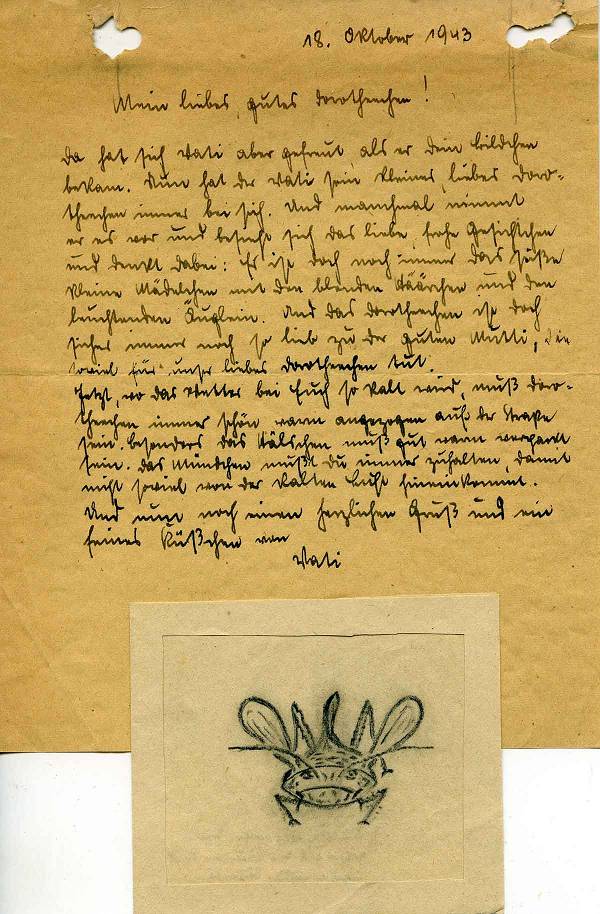 18. Oktober 1943
Mein liebes, gutes Dorotheechen!
Da hat sich Vati aber gefreut, als er Dein Bildchen
bekam. Nun hat der Vati sein kleines, liebes Doro-
theechen immer bei sich. Und manchmal nimmt
er es vor und besieht sich das liebe, frohe Gesichtchen
und denkt dabei: Es ist doch noch immer das süße
kleine Mädelchen mit den blonden Häärchen und den
leuchtenden Äuglein. Und das Dorotheechen ist doch
sicher immer noch so lieb zu der guten Mutti, die
soviel für unser liebes Dorotheechen tut.
Jetzt, wo das Wetter bei Euch so kalt wird, muß Doro-
theechen immer schön warm angezogen auf der Straße
sein. Besonders das Hälschen muß gut warm verpackt
sein. Das Mündchen mußt Du immer zuhalten, damit
nicht soviel von der kalten Luft hineinkommt.
Und nun noch einen herzlichen Gruß und ein
feines Küßchen von
Vati